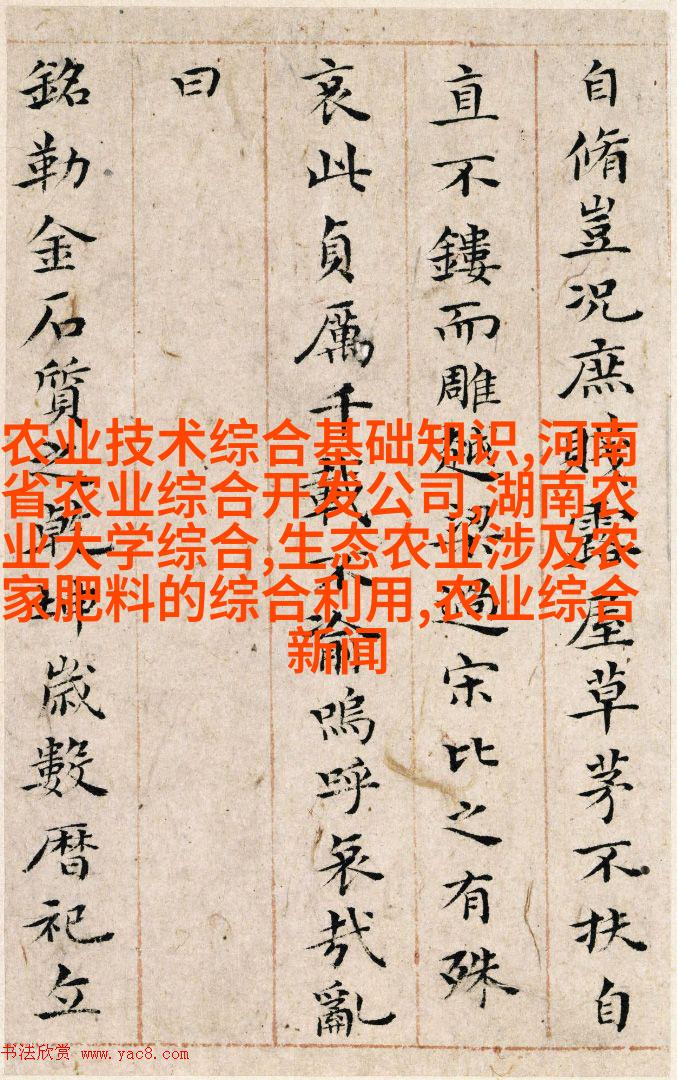 自脩豈況庶賤露屋草茅不扶自
直不鏤而雕越梁過宋比之有殊
哀此貞厲千載不渝嗚呼哀哉亂
曰
銘勒金石質之乾坤歲數暦祀立
农业技术综合基础知识,河南
省农业综合开发公司,湖南农
业大学综合,生态农业涉及农
家肥料的综合利用,农业综合
新闻
书法欣赏 www.yac8.com